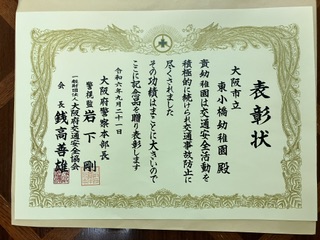 表彰状
大阪市立
東小橋幼稚園 殿
貴幼稚園は交通安全活動を
積極的に続けられ交通事故防止に
尽くされました
その功績はまことに大きいので
ここに記念品を贈り表彰します
令和六年九月二十一日
大阪府警察本部長
警視監 岩下 剛
一般財団法人 大阪府交通安全協会
会長 銭高善雄